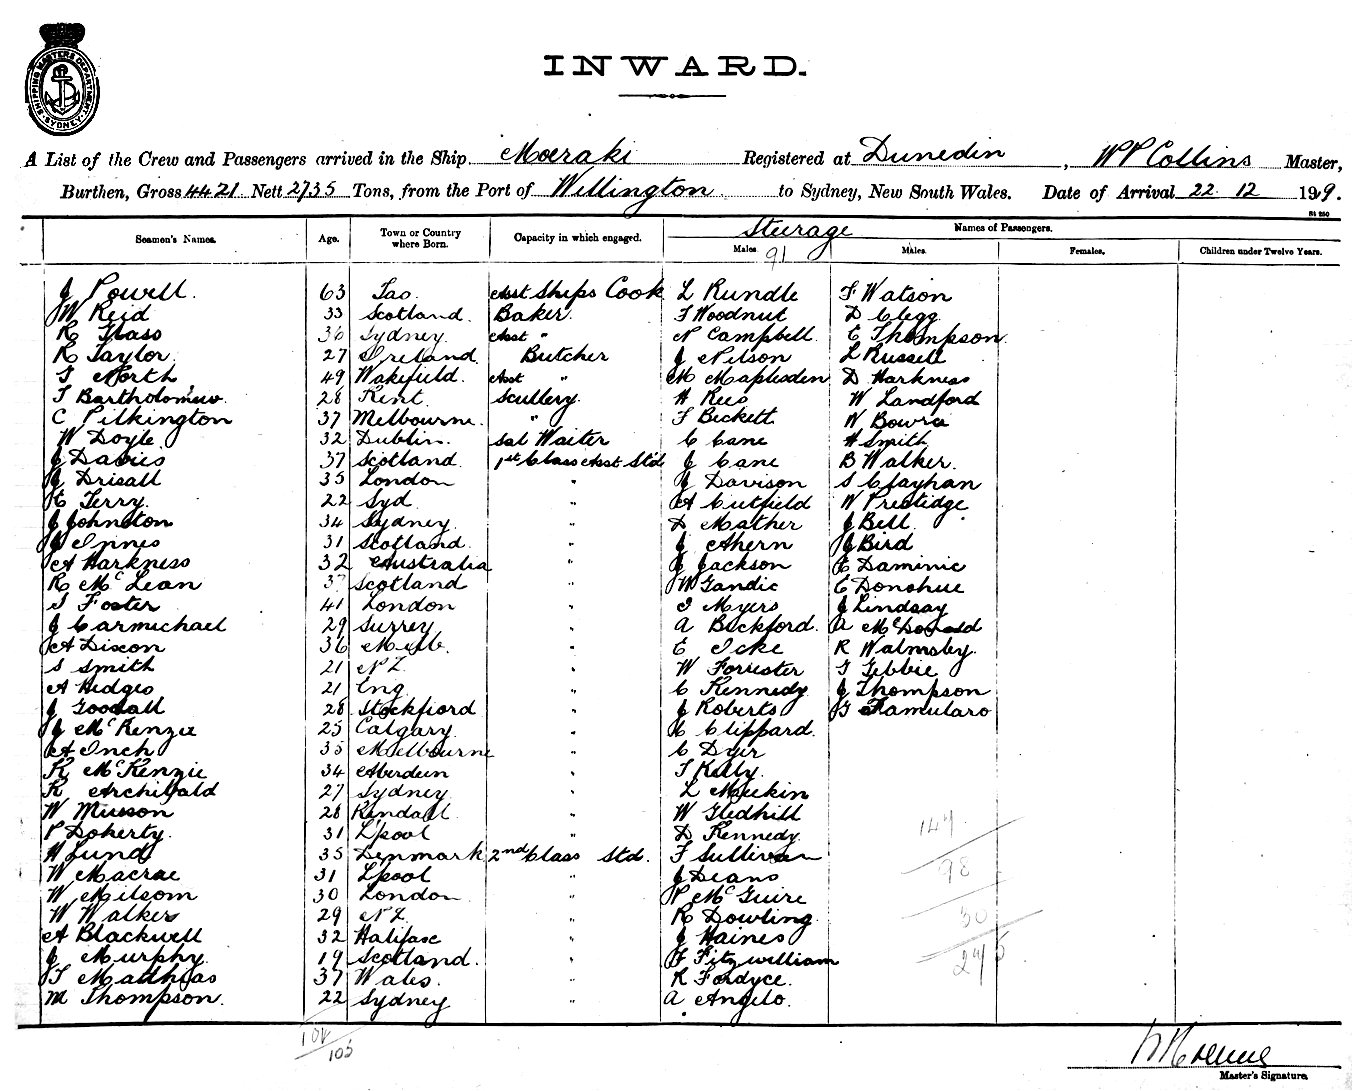 SHIPPING MASTERS DEPARTMENT SYDNEY
INWARD.
A List of the Crew and Passengers arrived in the Ship Moeraki Registered at Dunedin, WP Collins Master,
Burthen, Gross 4421 Nett 2735 Tons, from the Port of Wellington to Sydney, New South Wales. Date of Arrival 22. 12 19 9.
Steerage
Seamen's Names. Age. Town or Country where Born. Capacity in which engaged. Names of Passengers.
Males. Males. Females. Children under Twelve Years.
91
J Powell. 63 Tas. Asst Ships Cook L Rundle F Watson
W Reid 33 Scotland. Baker. F Woodnut D Clegg
R Glass 36 Sydney. Asst " N Campbell E Thompson
R Taylor. 27 Ireland. Butcher J Nilson L Russell
T North 49 Wakefield. Asst " M Maplesden D Harkness
T Bartholomew. 28 Kent. Scullery. H Rees W Landford
C Pilkington 37 Melbourne. " F Beckett W Bowra
W Doyle 32 Dublin. Sal Waiter C Cane H Smith
J Davies 37 Scotland. 1st Class Asst Std J Cane B Walker.
J Drisall 35 London " J Davison S Clayhan
H Terry. 22 Syd " A Cutfield W Prestidge
J Johnston 34 Sydney. " D Mather J Bell
J Innes 31 Scotland. " J Ahern J Bird
A Harkness 32 Australia " J Jackson E Daminic
R McLean 37 Scotland " W Gandic E Donohue
S Foster 41 London " I Myers J Lindsay
J Carmichael 29 Surrey " A Beckford. A McDonald
A Dixon 36 Melb. " E Icke R Walmsley.
S Smith 21 NZ " W Forrester T Gebbie
A Hedges 21 Eng " C Kennedy J Thompson
J Goodall 28 Stockfiord " J Roberts G Famularo
J McKenzie 25 Calgary. " H Clippard.
A Inch 35 Melbourne " C Dyer
R McKenzie 34 Aberdeen " T Kelly.
R Archibald 27 Sydney " L Meekin
W Musson 28 Kendall " W Gledhill
P Doherty. 31 L'pool " D Kennedy
W Lund 35 Denmark 2nd Class Std. F Sullivan
W Macrae 31 L'pool " J Deans
W Milsom 30 London " P McGuire
W Walker 29 NZ " R Dowling
A Blackwell 32 Halifax " J Haines
J Murphy. 19 Scotland. " F Fitzwilliam
T Mathias 37 Wales. " R Fordyce.
M Thompson. 22 Sydney " A Angelo.
147
98
30
105
Master's Signature.